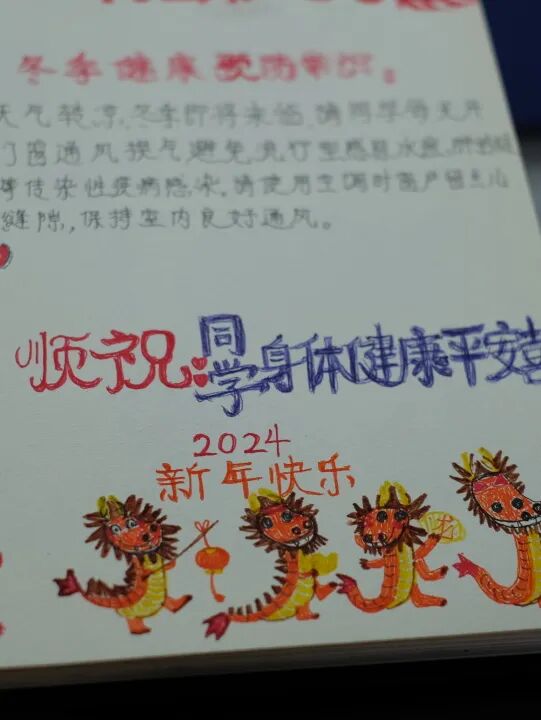 冬季健康预防常识。
天气转凉,冬季即将来临,请同学每天开
门窗通风换气避免,流行型感冒水痘,肺结核
等传染性疫病感染,请使用空调时窗户留点儿
缝隙,保持室内良好通风。
顺祝:同学身体健康平安喜
2024
新年快乐